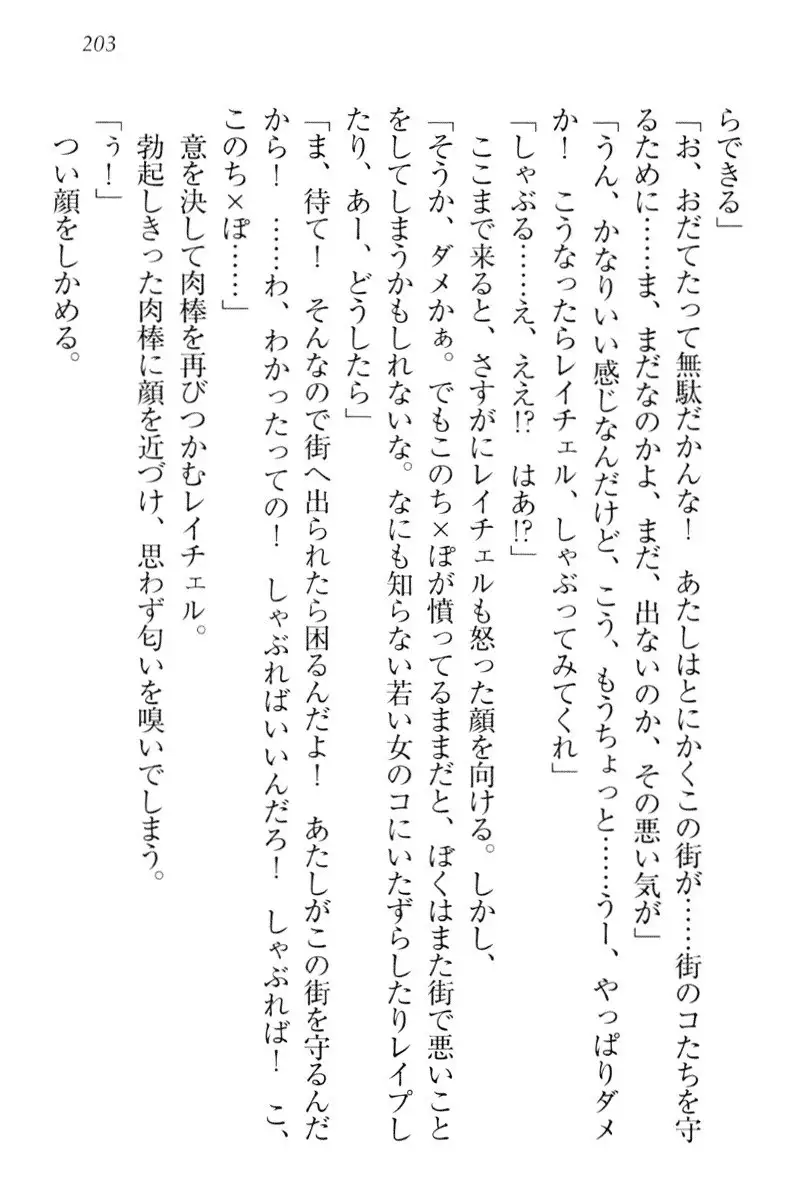 203
らできる」
「お、おだてたって無駄だかんな！　あたしはとにかくこの街が……街のコたちを守
るために……ま、まだなのかよ、まだ、出ないのか、その悪い気が」
「うん、かなりいい感じなんだけど、こう、もうちょっと……うー、やっぱりダメ
か！　こうなったらレイチェル、しゃぶってみてくれ」
「しゃぶる……え、ええ!?　はあ!?」
ここまで来ると、さすがにレイチェルも怒った顔を向ける。しかし、
「そうか、ダメかぁ。でもこのち×ぽが憤ってるままだと、ぼくはまた街で悪いこと
をしてしまうかもしれないな。なにも知らない若い女のコにいたずらしたりレイプし
たり、あー、どうしたら」
「ま、待て！　そんなので街へ出られたら困るんだよ！　あたしがこの街を守るんだ
から！　……わ、わかったっての！　しゃぶればいいんだろ！　しゃぶれば！　こ、
このち×ぽ……」
意を決して肉棒を再びつかむレイチェル。
勃起しきった肉棒に顔を近づけ、思わず匂いを嗅いでしまう。
「ぅ！」
つい顔をしかめる。